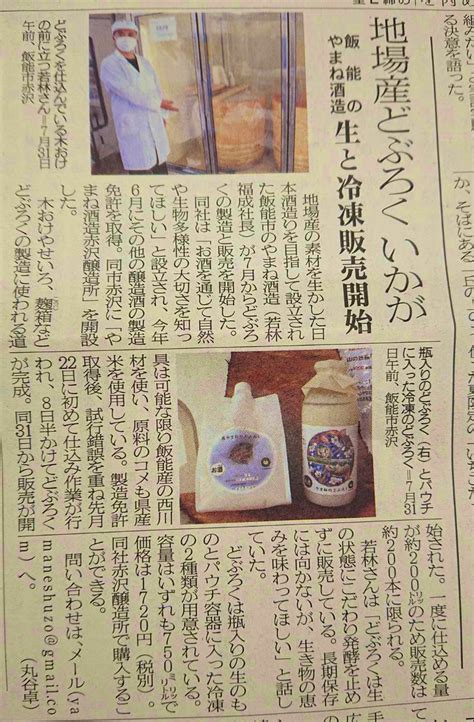 組みたい」
る決意を語った。
か、そばにある
地場産どぶろくいかが
飯能の
やまね酒造
生と冷凍販売開始
どぶろくを仕込んでいる木おけ
の前に立つ若林さん=7月31日
午前、飯能市赤沢
地場産の素材を生かした日
本酒造りを目指して設立され
た飯能市のやまね酒造(若林
福成社長)が7月からどぶろ
くの製造と販売を開始した。
同社は「お酒を通じて自然
や生物多様性の大切さを知っ
てほしい」と設立され、今年
6月にその他の醸造酒の製造
免許を取得。同市赤沢に「や
まね酒造赤沢醸造所」を開設
した。
木おけやせいろ、麹箱など
どぶろくの製造に使われる道
瓶入りのどぶろく(右)とパウチ
に入った冷凍のどぶろく=7月31
日午前、飯能市赤沢
お酒
具は可能な限り飯能産の西川
材を使い、原料のコメも県産
米を使用している。製造免許
取得後、試行錯誤を重ね先月
22日に初めて仕込み作業が行
われ、8日半かけてどぶろく
が完成。同31日から販売が開
始された。一度に仕込める量
が約200リットルのため販売数は
約200本に限られる。
若林さんは「どぶろくは生
の状態にこだわり発酵を止め
ずに販売している。長期保存
には向かないが、生き物の恵
みを味わってほしい」と話し
ていた。
どぶろくは瓶入りの生のも
のとパウチ容器に入った冷凍
の2種類が用意されている。
容量はいずれも750ミリリットルで
価格は1720円(税別)。
同社赤沢醸造所で購入するこ
とができる。
問い合わせは、メール(ya
maneshuzo@gmail.co
m)へ。(丸谷卓)